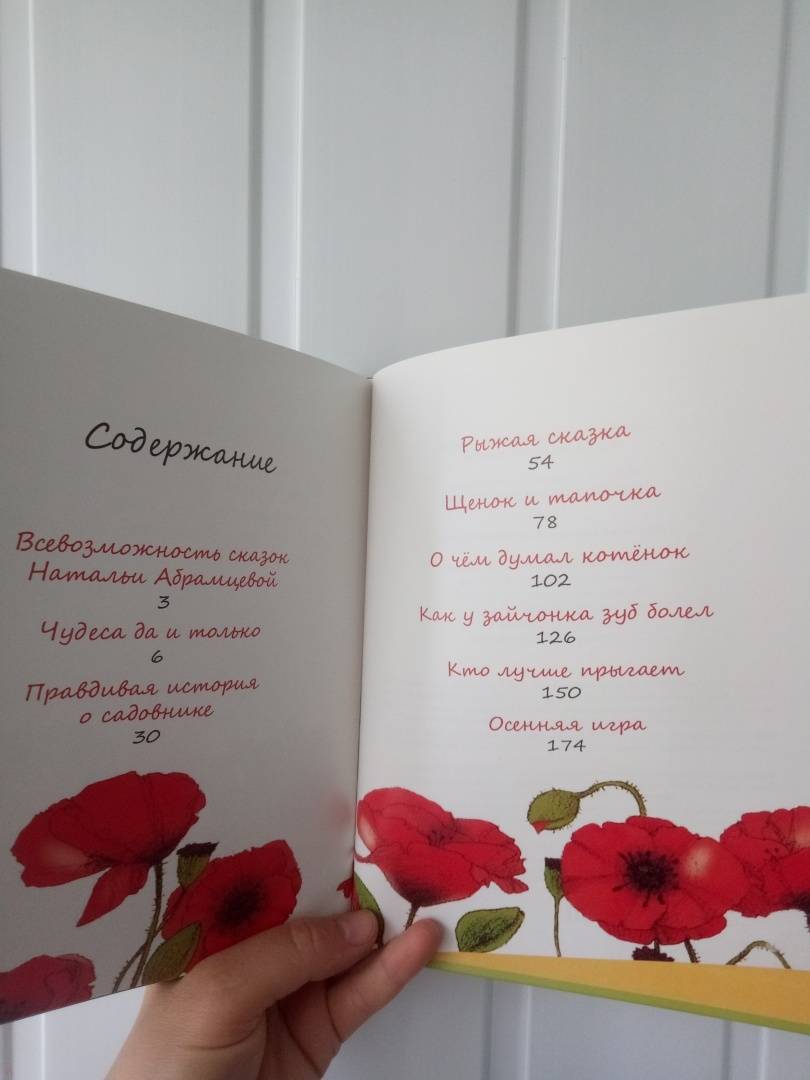 Содержание
Всевозможность сказок
Натальи Абрамцевой
3
Чудеса да и только
6
Правдивая история
о садовнике
30
Рыжая сказка
54
Щенок и тапочка
78
О чём думал котёнок
102
Как у зайчонка зуб болел
126
Кто лучше прыгает
150
Осенняя игра
174